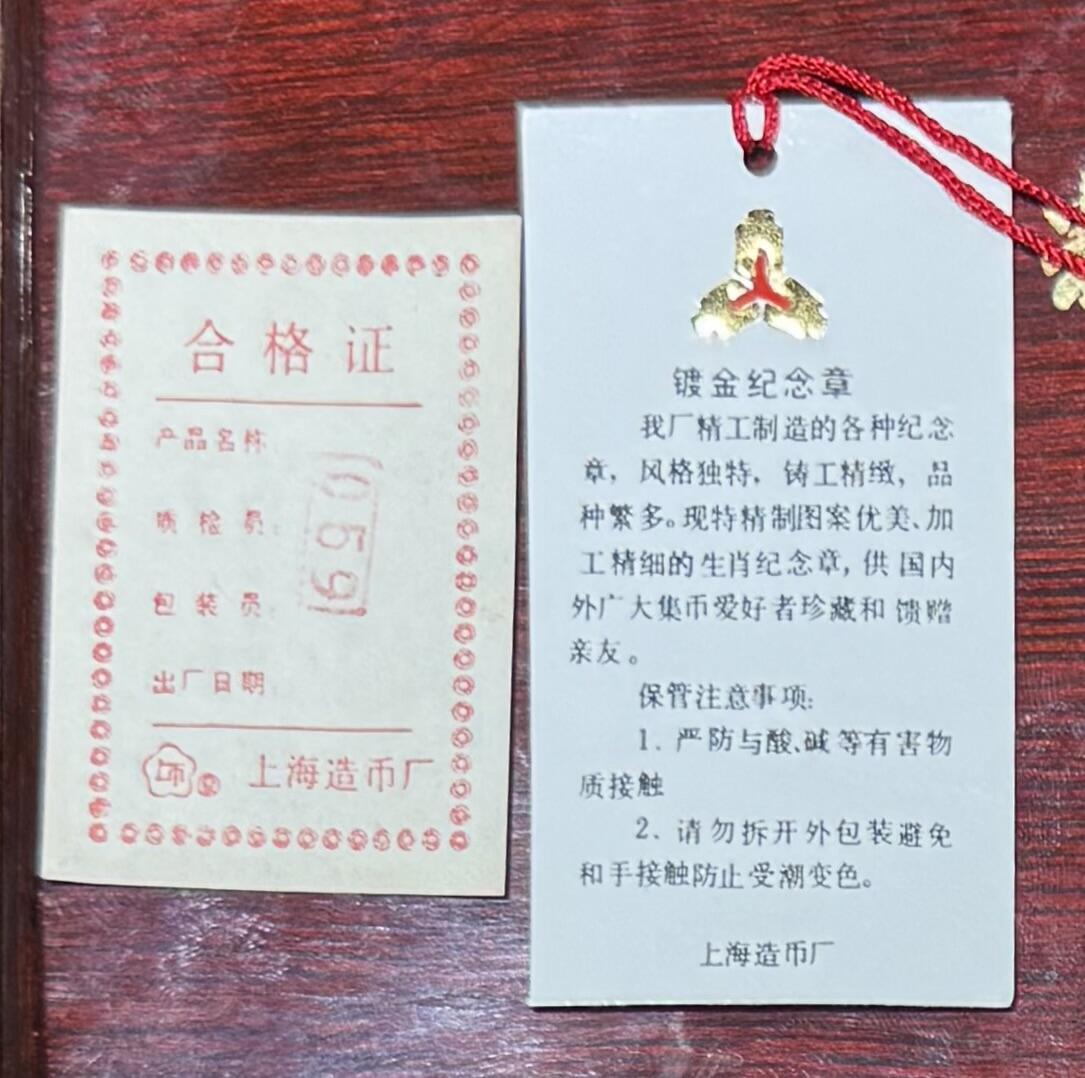 合格证
产品名称
质检员:
包装员:
出厂日期
上海造币厂
镀金纪念章
我厂精工制造的各种纪念
章，风格独特，铸工精致，品
种繁多。现特精制图案优美、加
工精细的生肖纪念章，供国内
外广大集币爱好者珍藏和馈赠
亲友。
保管注意事项:
1. 严防与酸、碱等有害物
质接触
2. 请勿拆开外包装避免
和手接触防止受潮变色。
上海造币厂